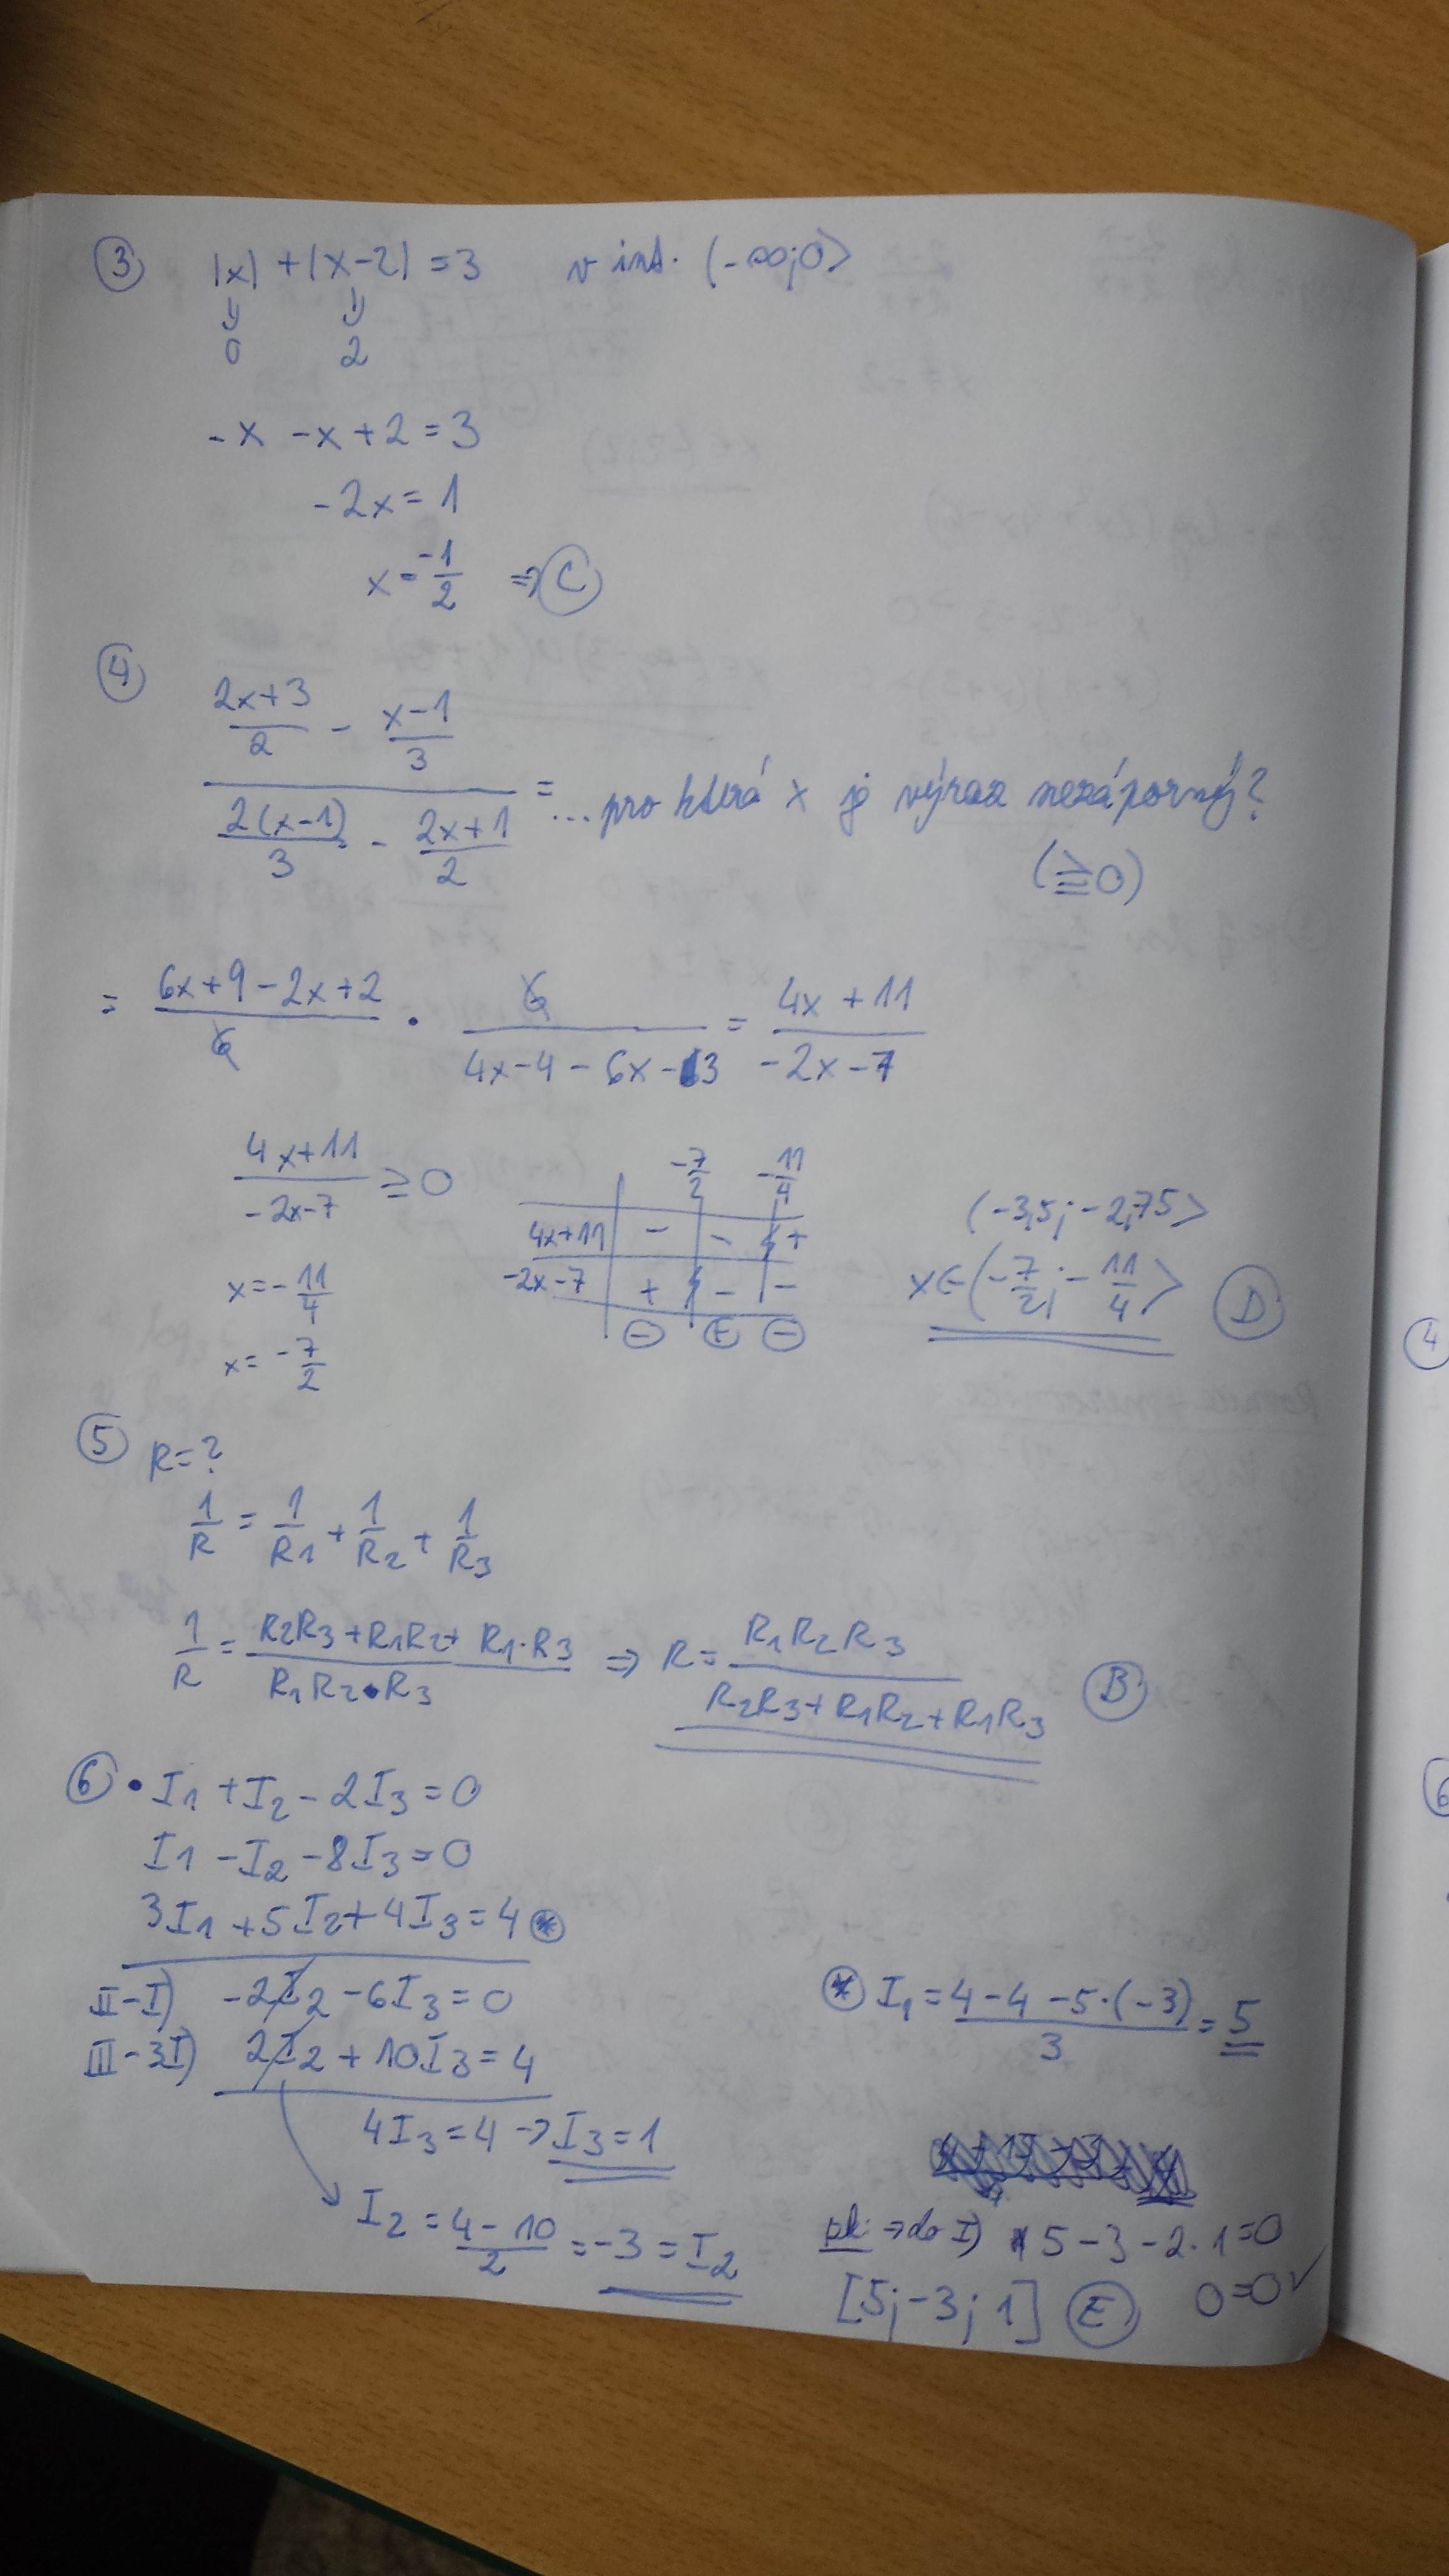 ③ |x| + |x-2| = 3 v int. (-∞;0>
0 2
-x -x+2 = 3
-2x = 1
x = -1/2 ⇒ Ⓒ
④
(2x+3)/2 - (x-1)/3
= ...pro která x je výraz nezáporný?
2(x-1)/3 - (2x+1)/2
(≧0)
= (6x+9-2x+2)/6 · 6/(4x-4-6x-3) = (4x+11)/(-2x-7)
(4x+11)/(-2x-7) ≥ 0
-7/2 -11/4
4x+11 - - +
-2x-7 + - -
⊖ ⊕ ⊖
x = -11/4
x = -7/2
(-3,5;-2,75>
x∈(-7/2;-11/4> Ⓓ
⑤ R=?
1/R = 1/R1 + 1/R2 + 1/R3
1/R = (R2R3+R1R2+R1·R3)/(R1R2·R3) ⇒ R = (R1R2R3)/(R2R3+R1R2+R1R3) Ⓑ
⑥ • I1 + I2 - 2I3 = 0
I1 - I2 - 8I3 = 0
3I1 + 5I2 + 4I3 = 4 ⊛
II-I) -2I2 - 6I3 = 0
III-3I) 2I2 + 10I3 = 4
4I3 = 4 → I3 = 1
I2 = (4-10)/2 = -3 = I2
⊛ I1 = (4-4-5·(-3))/3 = 5
zk: ⇒ do I) 5-3-2·1=0
0=0✓
[5;-3;1] Ⓔ
4
6